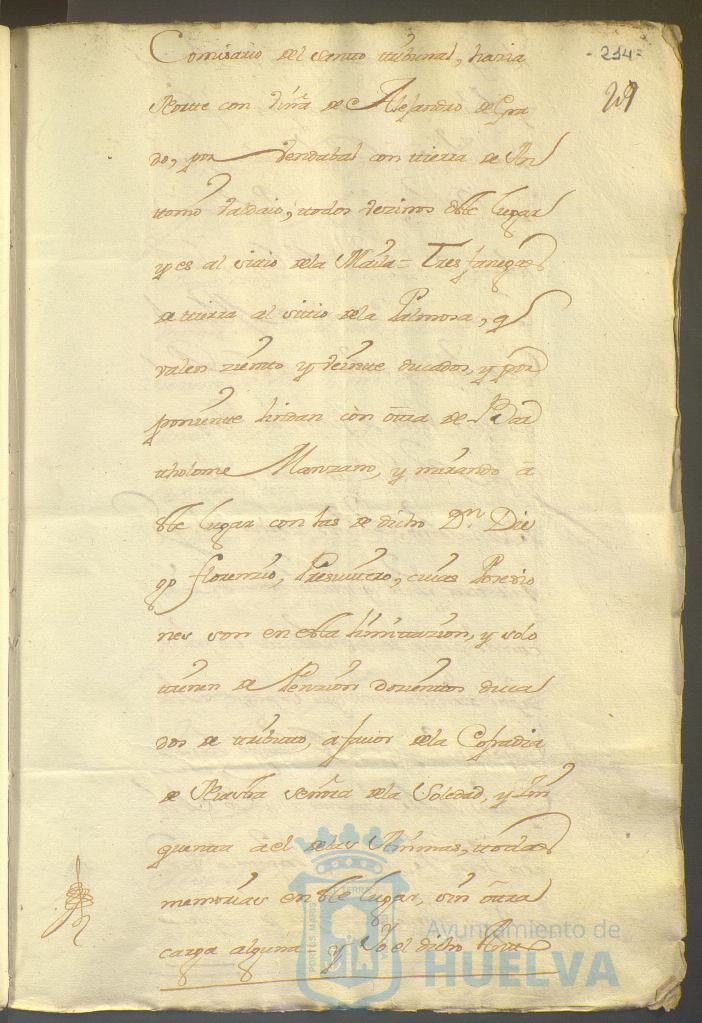 - 234 =
29
Comisario del santo tribunal, hacia
Norte con viña de Alejandro de Gra
do, por Vendabal con tierra de An
tonio , todos vezinos de este lugar
y es al sitio de la = Tres fanegas
de tierra al sitio de la Palmosa, q
valen ziento y veinte ducados, y por
poniente lindan con otra de Bar
tholome Manzano, y mirando a
este lugar con las de dicho Dn. Die
go florenzio, Presvitero, cuias Posesio
nes son en esta limitazion, y solo
tienen de Penzion dozientos duca
dos de tributo, a favor de la Cofradia
de Nuestra señora de la Soledad, y zin
quenta a el de las Animas, todas
memorias en este lugar, sin otra
carga alguna y Yo el dicho
PORTUS MARIS ET TERRAE CUSTODIA
Ayuntamiento de
HUELVA